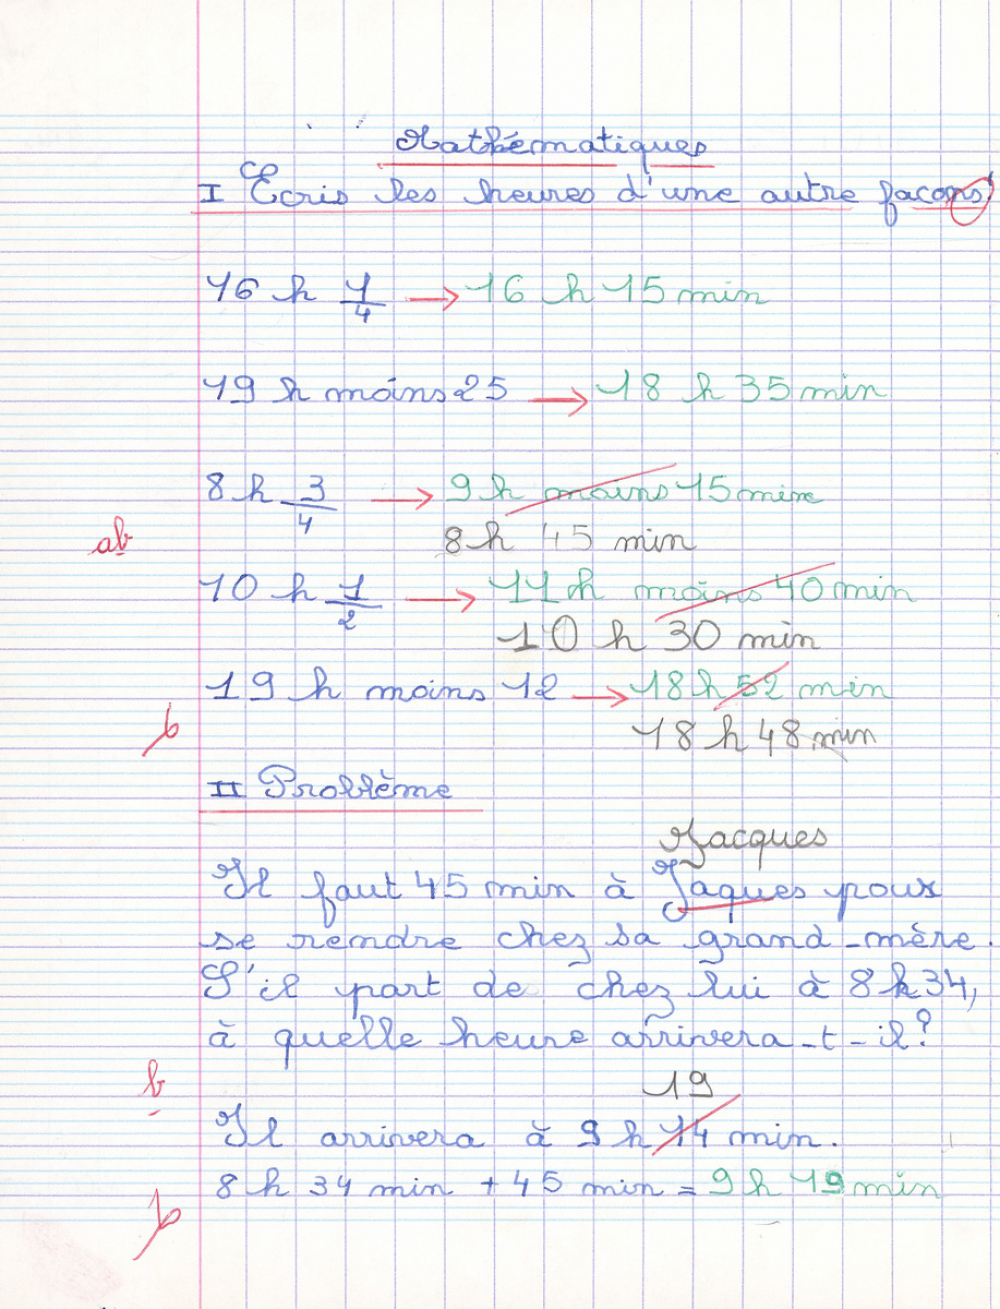 Mathématiques
I Ecris les heures d'une autre façons
16 h 1/4 → 16 h 15 min
19 h moins 25 → 18 h 35 min
8 h 3/4 → 9 h moins 15 min
ab 8 h 45 min
10 h 1/2 → 11 h moins 40 min
10 h 30 min
19 h moins 12 → 18 h 52 min
b 18 h 48 min
II Problème
Jacques
Il faut 45 min à Jaques pour
se rendre chez sa grand-mère.
S'il part de chez lui à 8 h 34,
à quelle heure arrivera-t-il?
b 19
Il arrivera à 9 h 14 min.
8 h 34 min + 45 min = 9 h 19 min
b